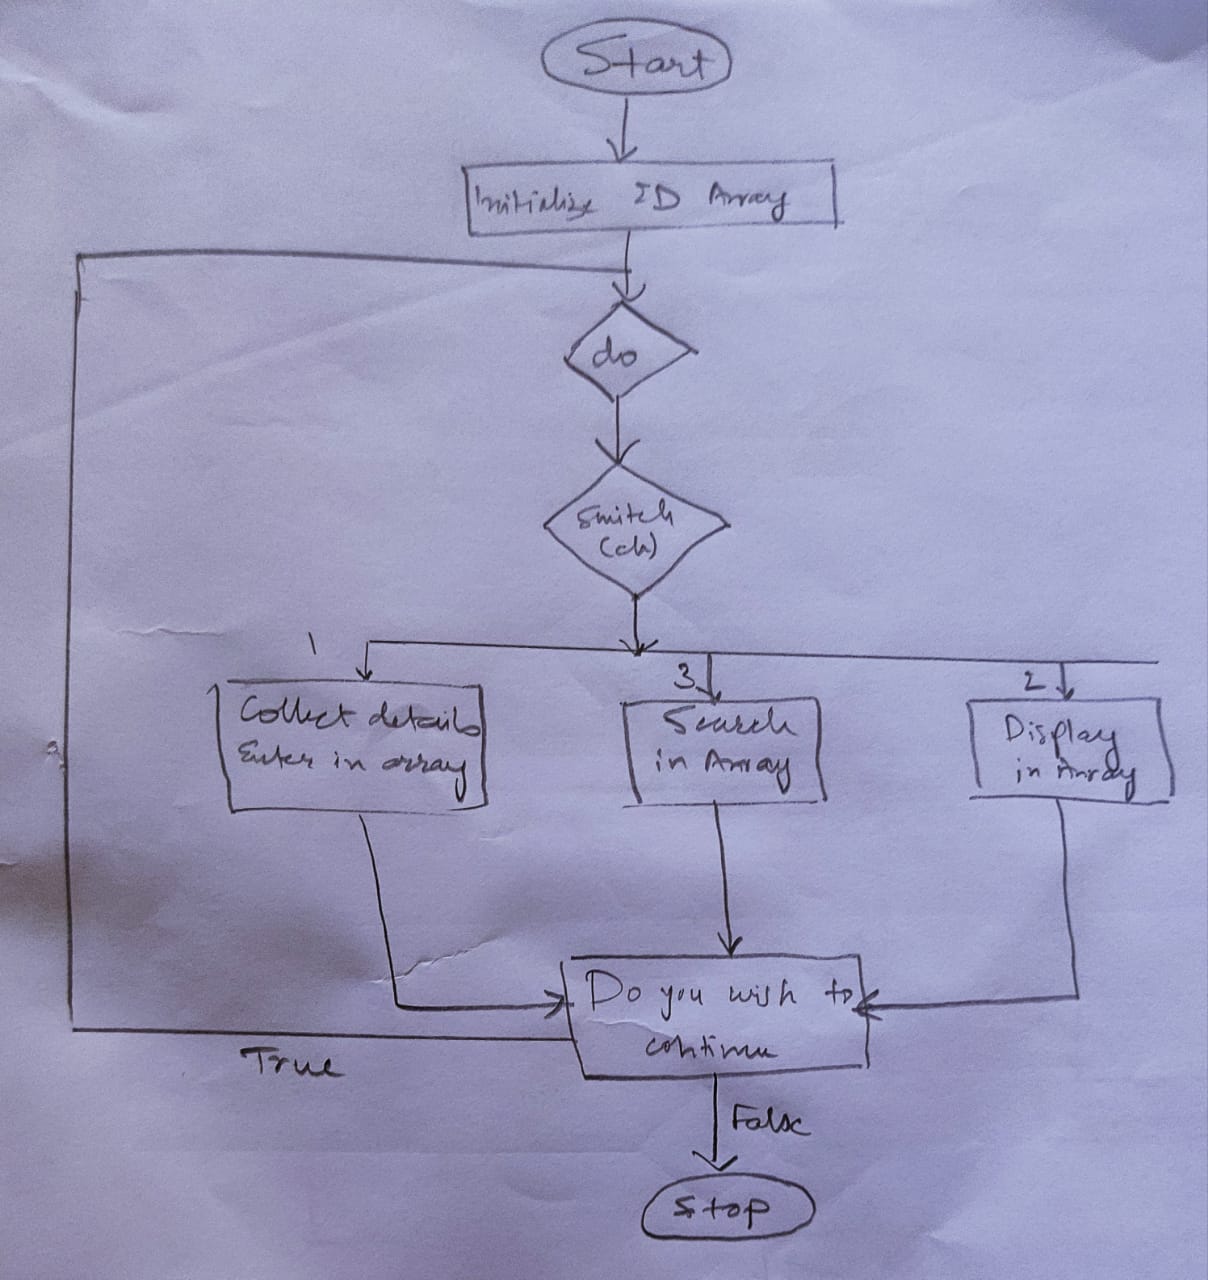 Start
Initialize ID Array
do
Switch
(ch)
1
3
2
Collect details
Enter in array
Search
in Array
Display
in Array
Do you wish to
continue
True
False
Stop